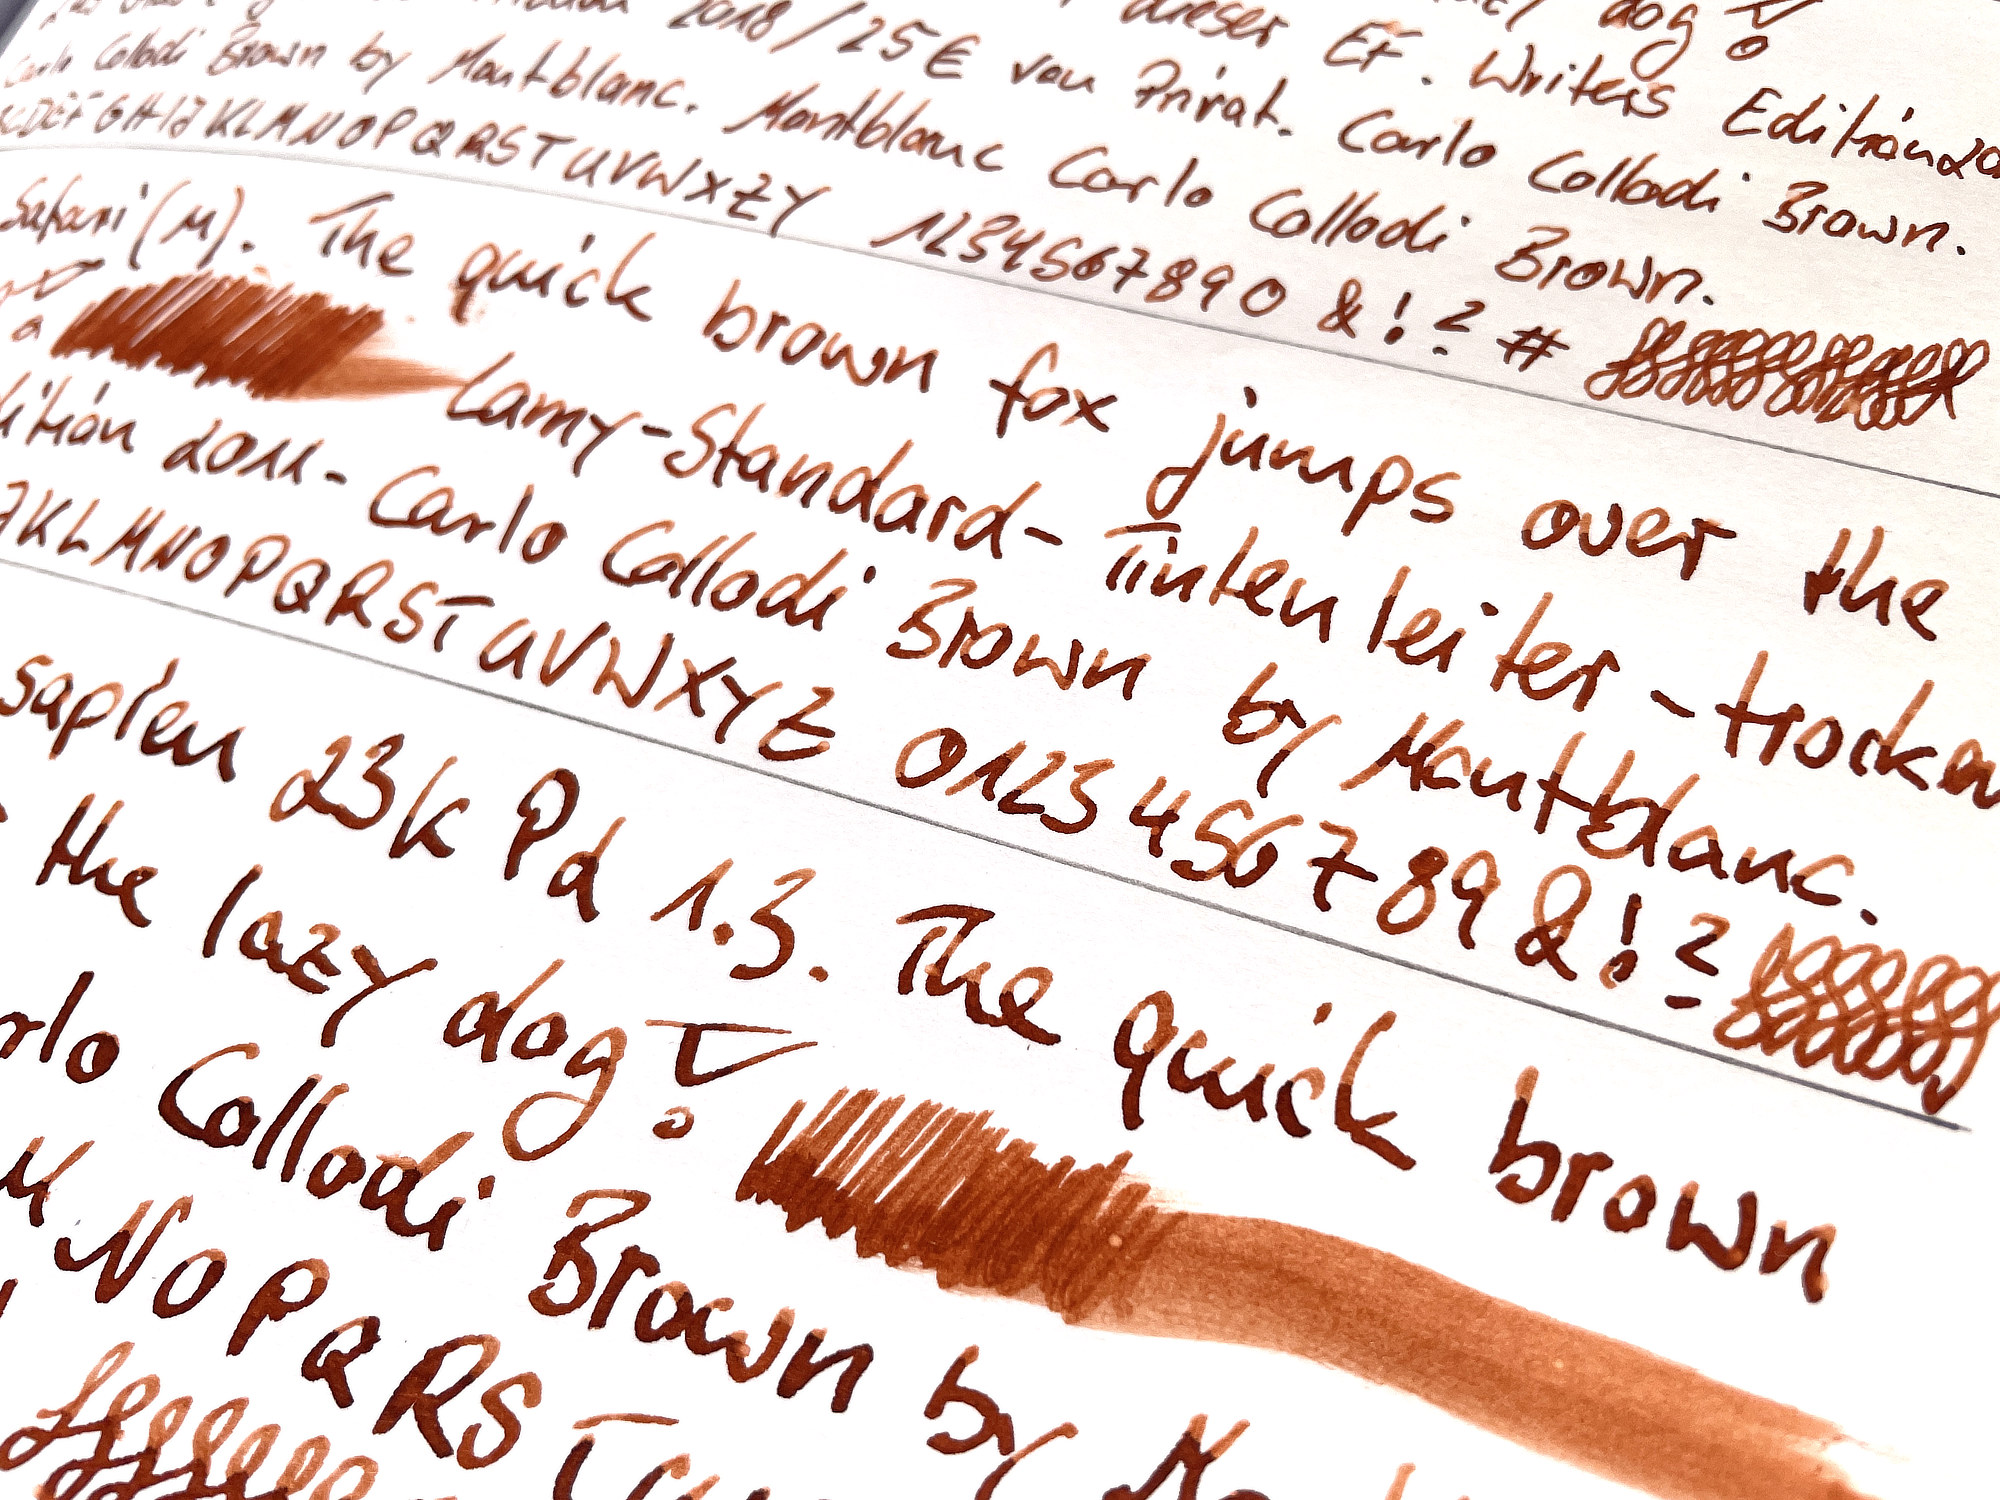 2018/25€ von Privat. Carlo Collodi Brown.
dieser EF. Writers Edition 20
dog!
Carlo Collodi Brown by Montblanc. Montblanc Carlo Collodi Brown.
CDEFGHIJKLMNOPQRSTUVWXZY 1234567890 &!? #
Safari (M). The quick brown fox jumps over the
Lamy-Standard-Tintenleiter-trocken
dition 2011-Carlo Collodi Brown by Montblanc.
JKLMNOPQRSTUVWXYZ 0123456789 &!?
sapien 23k Pd 1.3. The quick brown
the lazy dog!
rlo Collodi Brown by Mont
M N O P Q R S T U